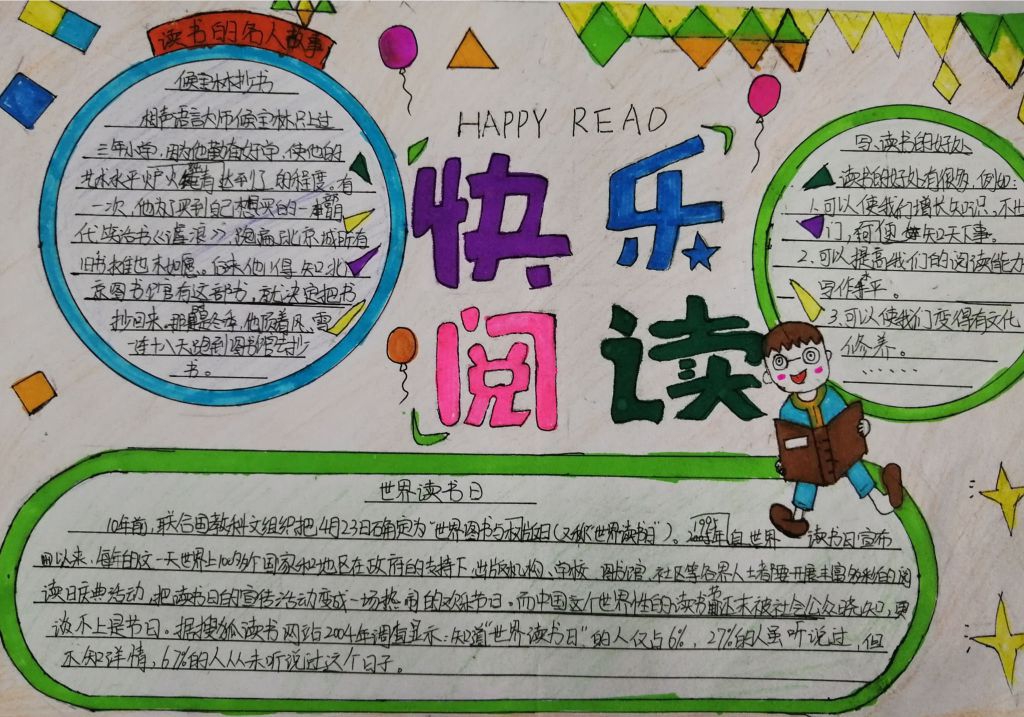 读书的名人故事
候宝林抄书
相声语言大师候宝林只上过
三年小学，因他勤奋好学，使他的
艺术水平炉火 达到了 的程度。有
一次，他为了买到自己想买的一本明
代笑话书《谑浪》，跑遍了北京城所有
旧书摊也未如愿。后来他们得知北
京图书馆有这部书，就决定把书
抄回来。 冬季，他顶着风、雪
一连十八天跑到图书馆去抄
书。
HAPPY READ
快乐
阅读
写、读书的好处
读书的好处有很多，例如：
1.可以使我们增长知识，不出
门，可便知天下事。
2.可以提高我们的阅读能力
写作水平。
3.可以使我们变得有文化
修养。
......
世界读书日
10年前，联合国教科文组织把4月23日确定为“世界图书与权版日（又称“世界读书日”）。1995年自世界 读书日宣布
以来，每年的这一天世界上100多个国家和地区在政府的支持下，出版机构、学校、图书馆、社区等各界人士都要开展丰富多彩的阅
读日庆典活动，把读书日的宣传活动变成一场热闹的欢乐节日。而中国这个世界性的读书节还未被社会公众晓知，更
谈不上是节日。据搜狐读书网站2004年调查显示：知道“世界读书日”的人仅占6%，27%的人虽听说过，但
不知详情，67%的人从未听说过这个日子。